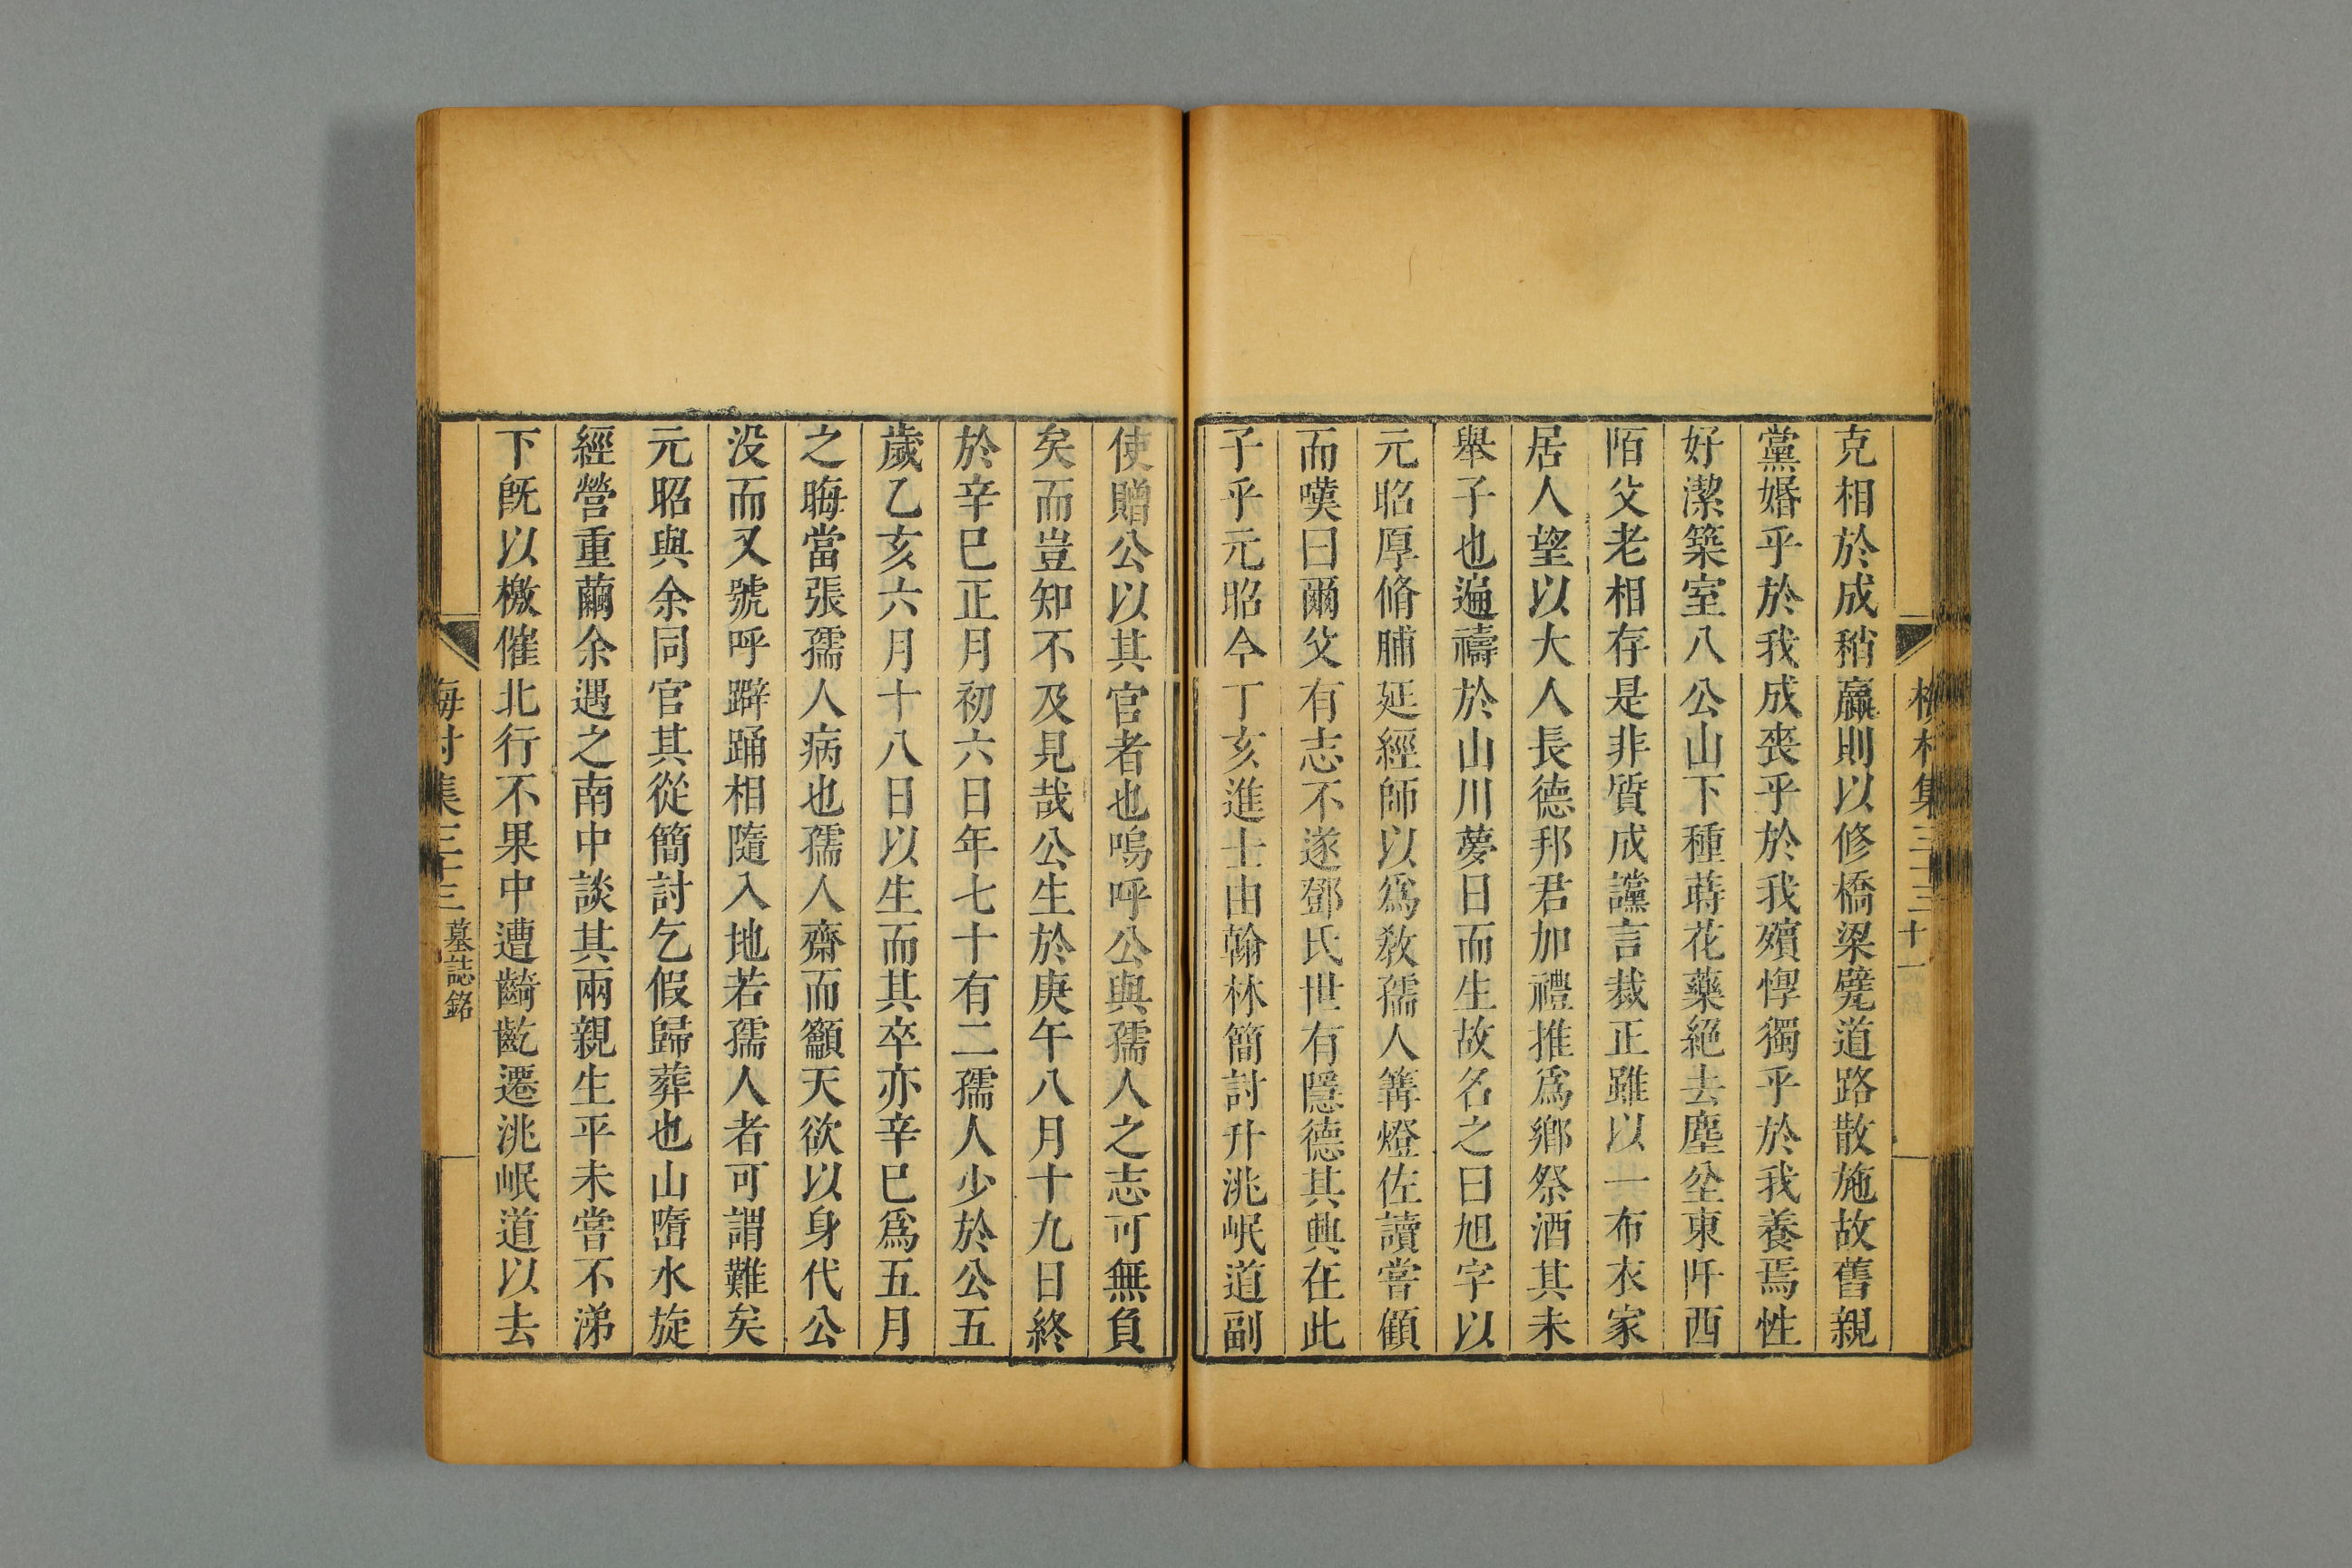 克相於成稍贏則以修橋梁甓道路散施故舊親
黨婚乎於我成喪乎於我殯惸獨乎於我養焉性
好潔築室八公山下種蒔花藥絕去塵坌東阡西
陌父老相存是非質成讜言裁正雖以一布衣家
居人望以大人長德邦君加禮推爲鄉祭酒其未
舉子也遍禱於山川夢日而生故名之曰旭字以
元昭厚脩脯延經師以爲敎孺人篝燈佐讀嘗顧
而嘆曰爾父有志不遂鄧氏世有隱德其興在此
子乎元昭今丁亥進士由翰林簡討升洮岷道副
使贈公以其官者也嗚呼公與孺人之志可無負
矣而豈知不及見哉公生於庚午八月十九日終
於辛巳正月初六日年七十有二孺人少於公五
歲乙亥六月十八日以生而其卒亦辛巳爲五月
之晦當張孺人病也孺人齋而籲天欲以身代公
没而又號呼躃踊相隨入地若孺人者可謂難矣
元昭與余同官其從簡討乞假歸葬也山嶞水旋
經營重繭余遇之南中談其兩親生平未嘗不涕
下旣以檄催北行不果中遭齮齕遷洮岷道以去
梅村集三十三 墓誌銘